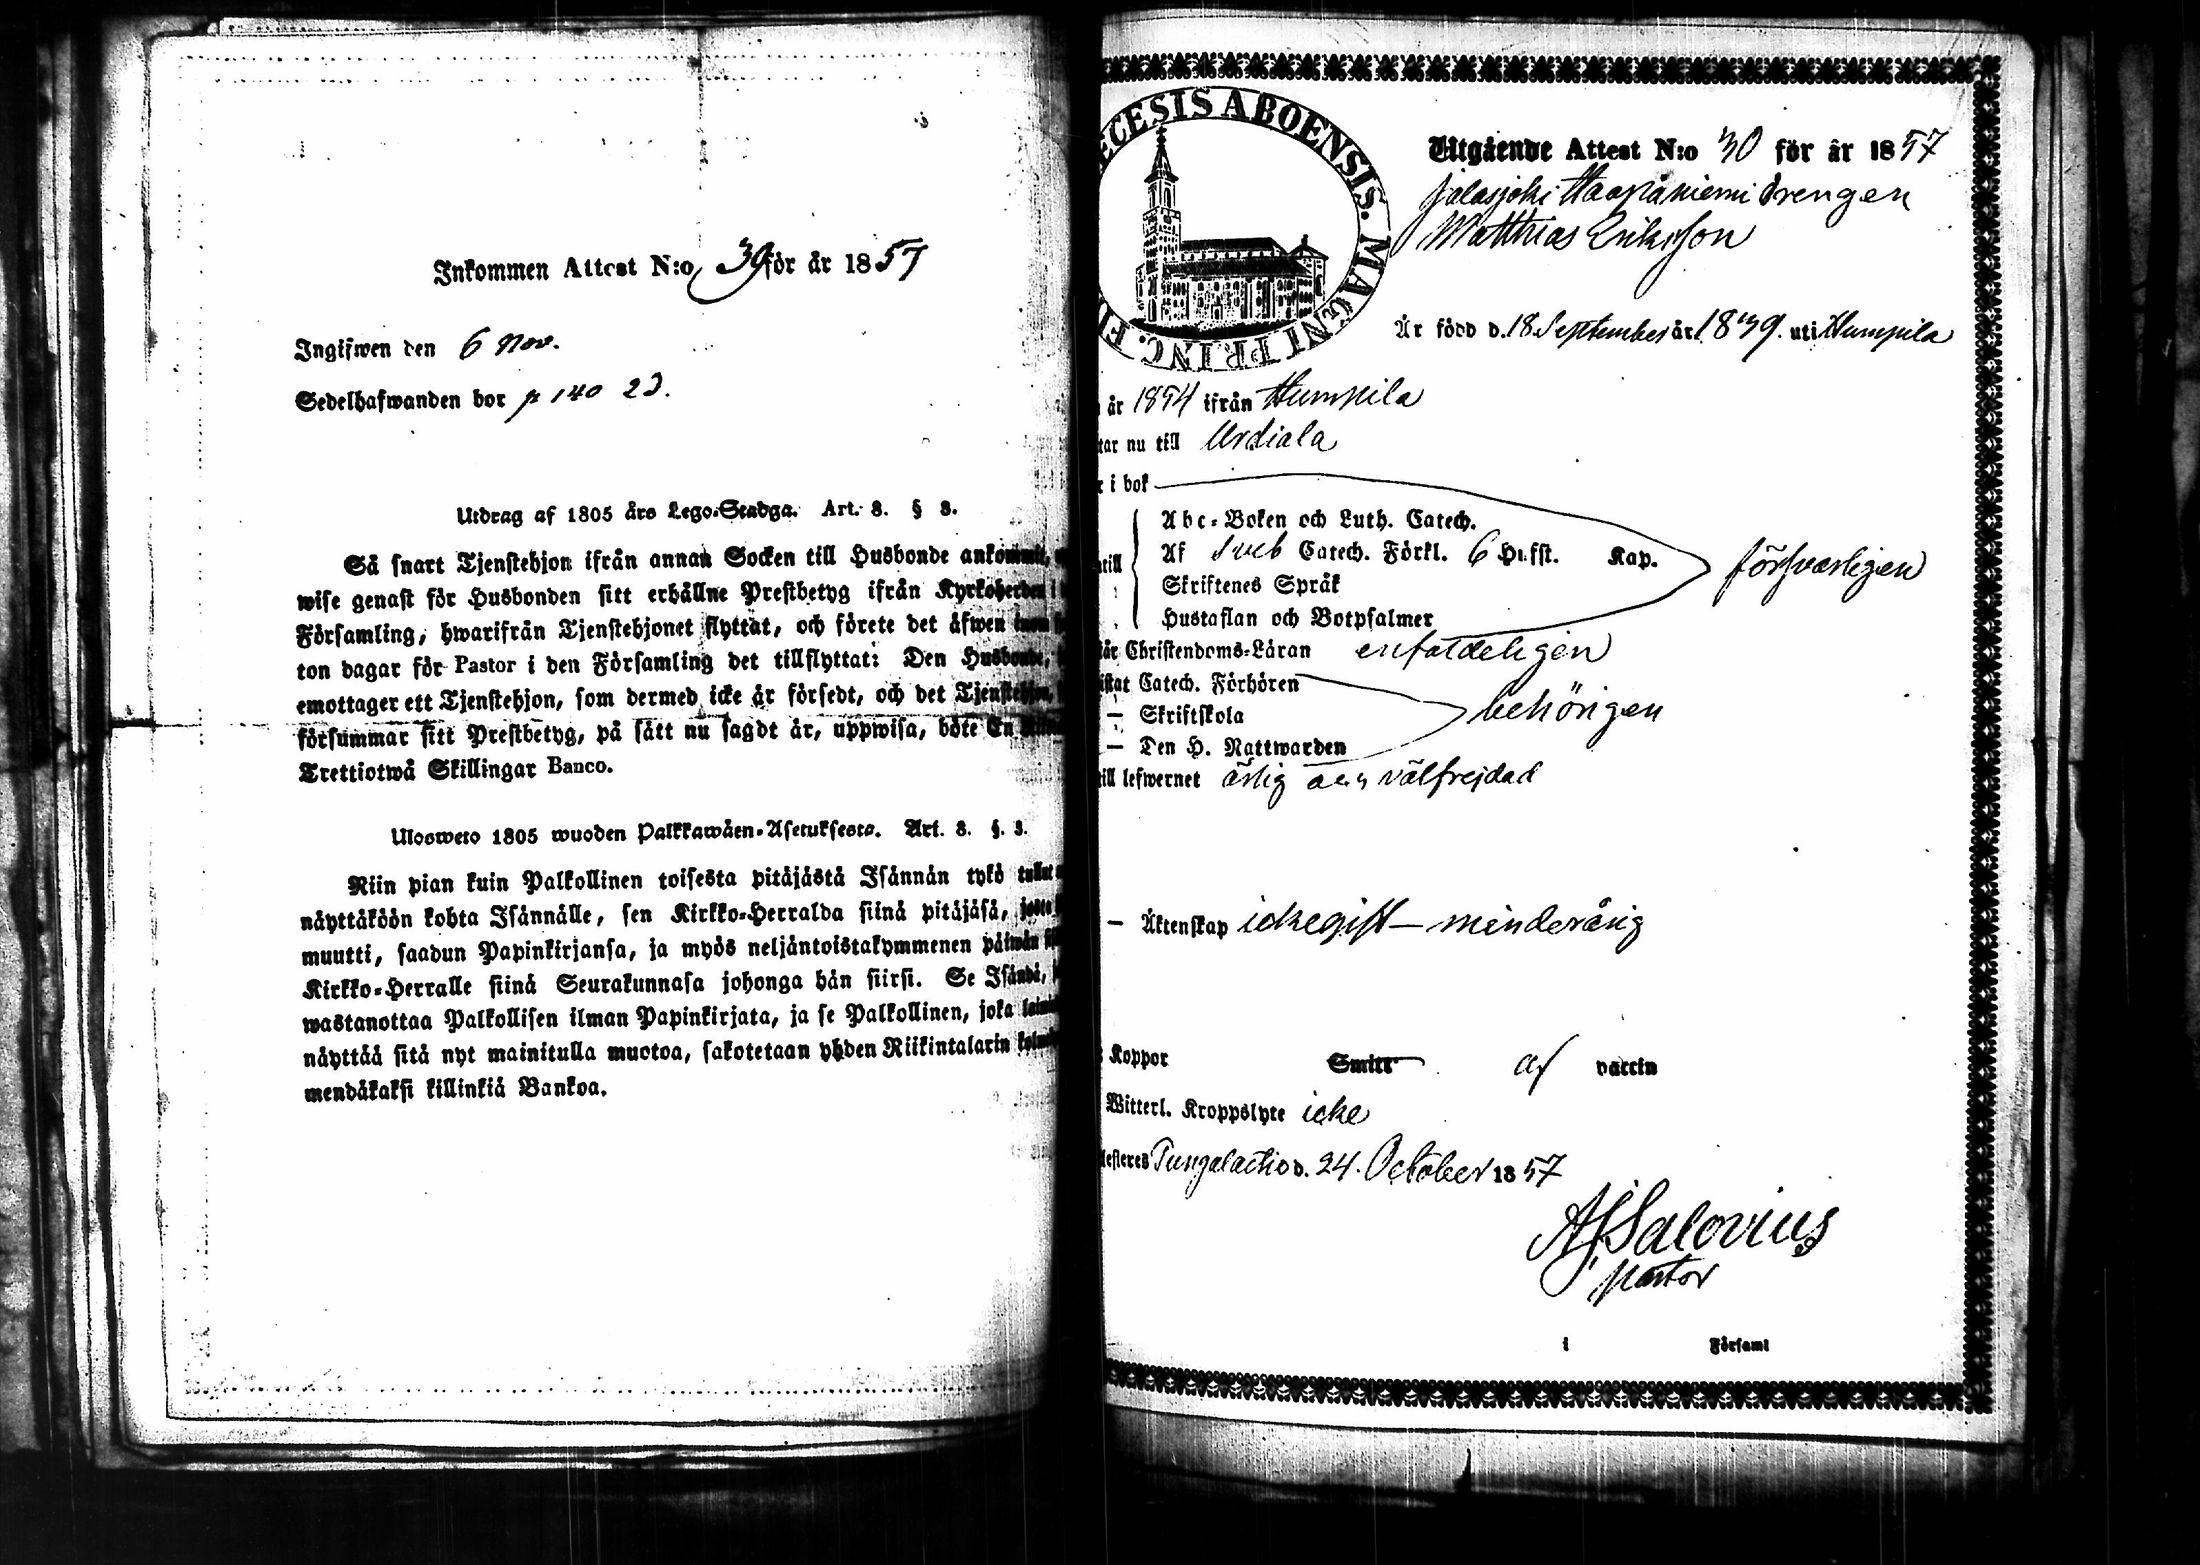 Inkommen Attest N:o 39 för år 1857
Ingifwen den 6 Nov.
Sedelhafwanden bor p 140 23.
Utdrag af 1805 års Lego-Stadga. Art. 8. § 8.
Så snart Tjenstehjon ifrån annan Socken till Husbonde ankommit,
wise genast för Husbonden sitt erhållne Prestbetyg ifrån Kyrkoherden i
Församling, hwarifrån Tjenstehjonet flyttat, och förete det äfwen inom
ton dagar för Pastor i den Församling det tillflyttat: Den Husbonde,
emottager ett Tjenstehjon, som dermed icke är försedt, och det Tjenstehjon,
försummar sitt Prestbetyg, på sätt nu sagdt är, uppwisa, böte En
Trettiotwå Skillingar Banco.
Ulosweto 1805 wuoden Palkkawäen-Asetuksesta. Art. 8. §. 8.
Niin pian kuin Palkollinen toisesta pitäjästä Isännän tykö tullut
näyttäköön kohta Isännälle, sen Kirkko-Herralda siinä pitäjäsä, josta
muutti, saadun Papinkirjansa, ja myös neljäntoistakymmenen päiwän
Kirkko-Herralle siinä Seurakunnasa johonga hän siirsi. Se Isändä,
wastanottaa Palkollisen ilman Papinkirjata, ja se Palkollinen, joka
näyttää sitä nyt mainitulla muotoa, sakotetaan yhden Riikintalarin
mendäkaksi killinkiä Bankoa.
ECESIS ABOENSIS. MAGNI PRINC. FI
Utgående Attest N:o 30 för år 1857
Jalasjoki Haapaniemi drengen
Matthias Eriksson
Är född d. 18 September år 1839. uti Humpila
år 1854 ifrån Humpila
tar nu till Urdiala
r i bok
Abc-Boken och Luth. Catech.
Af Sveb Catech. Förkl. 6 Hufst. Kap. försvarligen
Skriftenes Språk
Hustaflan och Botpsalmer
Christendoms-Läran enfaldeligen
istat Catech. Förhören
— Skriftskola behörigen
— Den H. Nattwarden
till lefwernet ärlig och välfrejdad
— Äktenskap icke gift — minderårig
Koppor Smitt af vaccin
Witterl. Kroppslyte icke
Tungalactio d. 24. October 1857
AJSalovius
Pastor
i Församl